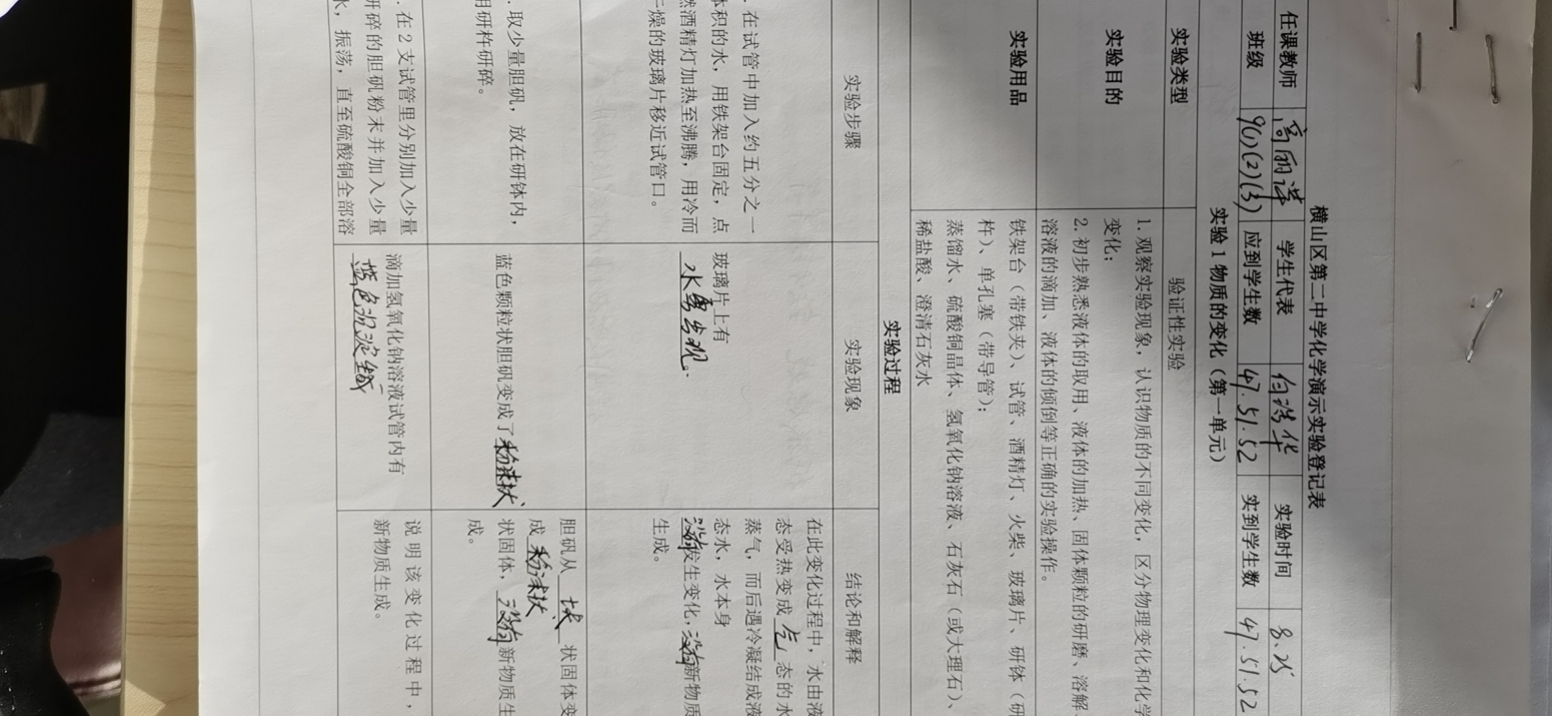 横山区第二中学化学演示实验登记表
任课教师 高丽萍 学生代表 实验时间 8.25
班级 9(1)(2)(3) 应到学生数 47.51.52 实到学生数 47.51.52
实验1物质的变化（第一单元）
实验类型 验证性实验
实验目的
1. 观察实验现象，认识物质的不同变化，区分物理变化和化学
变化；
2. 初步熟悉液体的取用、液体的加热、固体颗粒的研磨、溶解、
溶液的滴加、液体的倾倒等正确的实验操作。
实验用品
铁架台（带铁夹）、试管、酒精灯、火柴、玻璃片、研钵（研
杵）、单孔塞（带导管）；
蒸馏水、硫酸铜晶体、氢氧化钠溶液、石灰石（或大理石）、
稀盐酸、澄清石灰水
实验过程
实验步骤 实验现象 结论和解释
. 在试管中加入约五分之一
体积的水，用铁架台固定，点
然酒精灯加热至沸腾，用冷而
干燥的玻璃片移近试管口。
玻璃片上有
水雾出现。
在此变化过程中，水由液
态受热变成 气 态的水
蒸气，而后遇冷凝结成液
态水，水本身
没有发生变化，没有新物质
生成。
. 取少量胆矾，放在研钵内，
用研杵研碎。
蓝色颗粒状胆矾变成了粉末状
胆矾从 块 状固体变
成 粉末状
状固体，没有新物质生
成。
. 在2支试管里分别加入少量
研碎的胆矾粉末并加入少量
水，振荡，直至硫酸铜全部溶
滴加氢氧化钠溶液试管内有
蓝色沉淀生成
说明该变化过程中，
新物质生成。